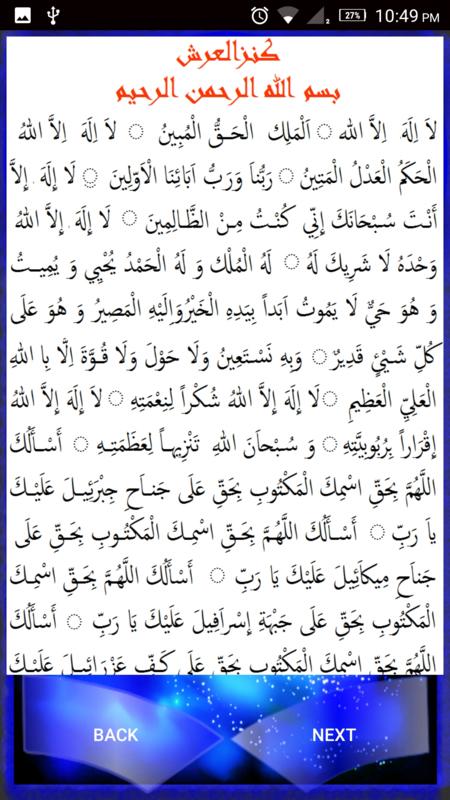 27% 10:49 PM
كنزالعرش
بسم الله الرحمن الرحيم
لاَ إِلَهَ إِلاَّ الله ۝ اَلْمَلِك الْحَـقُّ الْمُبِينُ ۝ لاَ إِلَهَ إِلاَّ اللهُ
الْحَكَمُ الْعَدْلُ الْمَتِينُ ۝ رَبُّنَا وَرَبُّ اَبَائِنَا الْاَوَّلِينَ ۝ لَا إِلَهَ إِلاَّ
أَنْتَ سُبْحَانَكَ إِنِّي كُنْتُ مِـنْ الظَّـالِمِينَ ۝ لَا إِلَهَ إِلاَّ اللهُ
وَحْدَهُ لَا شَرِيكَ لَهُ ۝ لَهُ الْمُلْك وَ لَهُ الْحَمْدُ يُحْيِي وَ يُمِيـتُ
وَ هُوَ حَيٌّ لَا يَمُوتُ اَبَداً بِيَدِهِ الْخَيْرُوَإِلَيْهِ الْمَصِيرُ وَ هُوَ عَلَى
كُلِّ شَيْئٍ قَدِيرٌ ۝ وَبِهِ نَسْتَعِينُ وَلَا حَوْلَ وَلَا قُـوَّةَ إِلَّا بِا اللهِ
الْعَلِيِّ الْعَظِيمِ ۝ لَا إِلَهَ إِلاَّ اللهُ شُكْراً لِنِعْمَتِهِ ۝ لاَ إِلَهَ إِلاَّ اللهُ
إِقْرَاراً بِرُبُوبِيَّتِهِ ۝ وَ سُبْحَانَ اللهِ تَنْزِيهـاً لِعَظَمَتِـهِ ۝ أَسْـأَلُكَ
اللَّهُمَّ بِحَقِّ اسْمِكَ الْمَكْتُوبِ بِحَقِّ عَلَى جَنـاَحِ جِبْرَئِيـلَ عَلَيْـكَ
ياَ رَبِّ ۝ أَسْـأَلُكَ اللَّهُمَّ بِحَقِّ اسْمِكَ الْمَكْتُـوبِ بِحَـقِّ عَلَى
جَنَاحِ مِيكَاَئِيلَ عَلَيْكَ يَا رَبِّ ۝ أَسْأَلُكَ اللَّهُمَّ بِحَـقِّ اسْمِـكَ
الْمَكْتُوبِ بِحَقِّ عَلَى جَبْهَةِ إِسْرَافِيلَ عَلَيْكَ يَا رَبِّ ۝ أَسْأَلُكَ
اللَّهُمَّ بِحَقِّ اسْمِكَ الْمَكْتُوبِ بِحَقِّ عَلَى كَـفِّ عَزْرَائِيـلَ عَلَيْـكَ
BACK NEXT